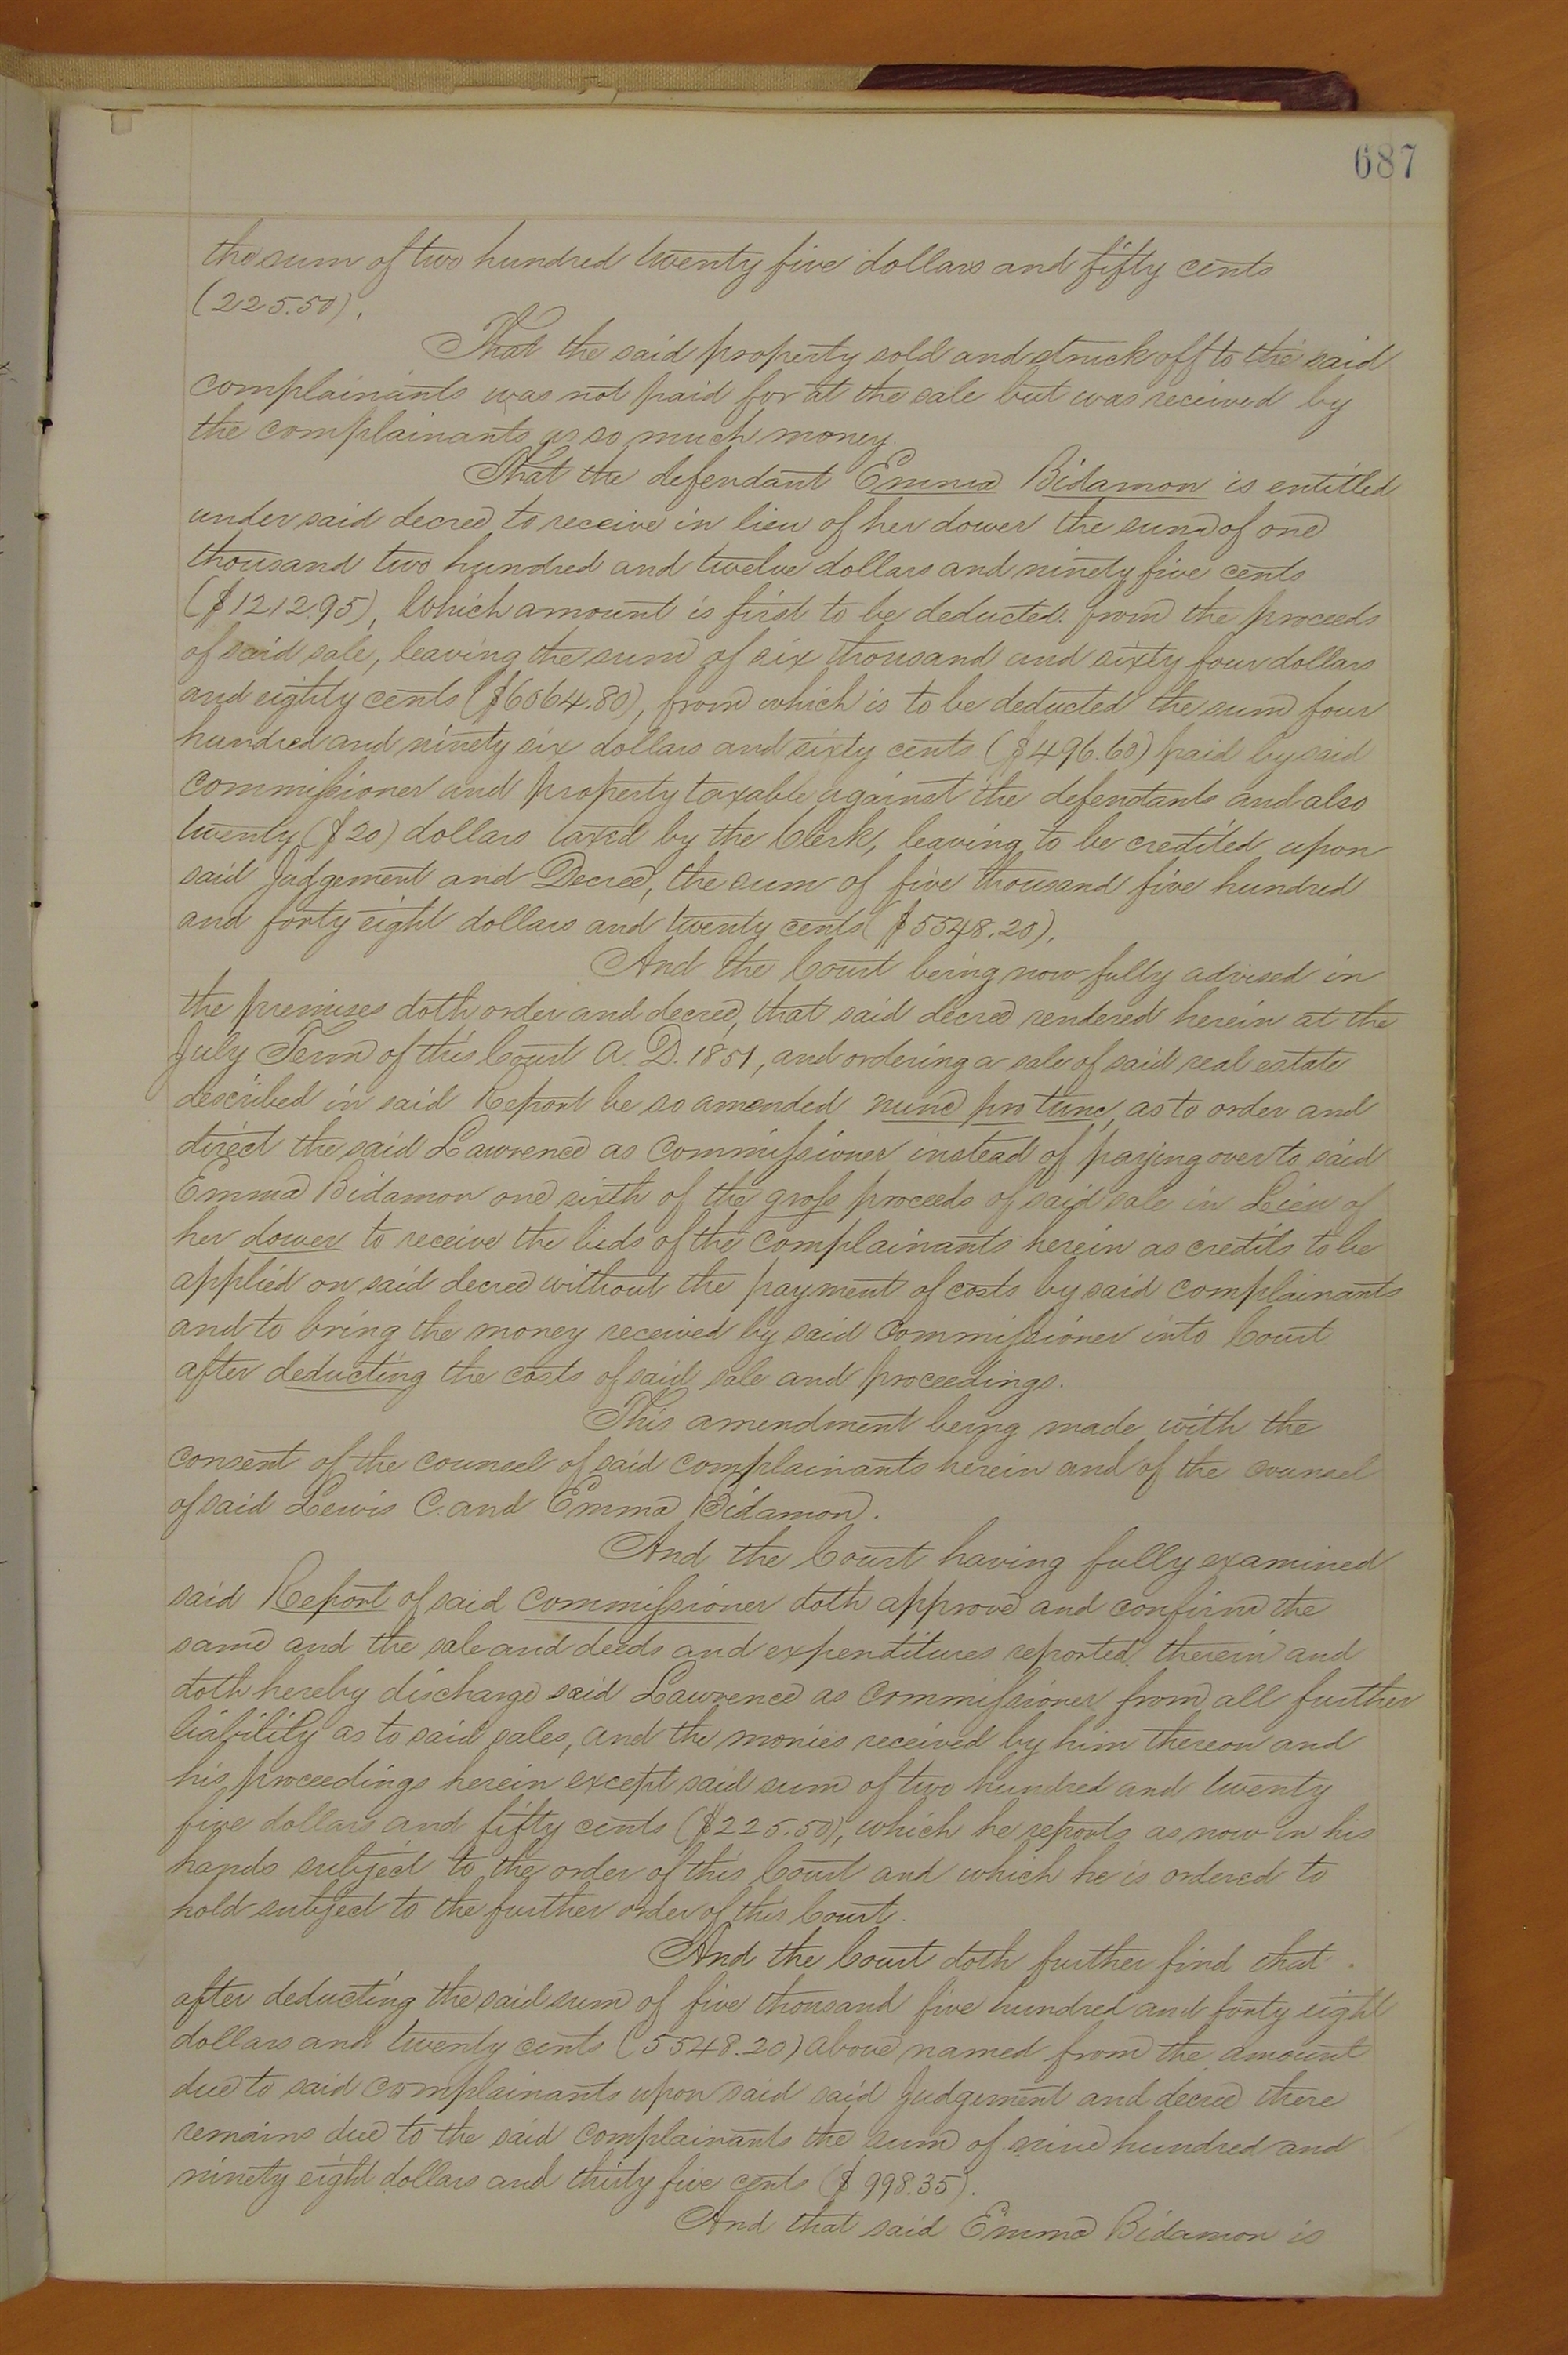 687
the sum of two hundred twenty five dollars and fifty cents
(225.50).
That the said property sold and struck off to the said
complainants was not paid for at the sale but was received by
the complainants as so much money.
That the defendant Emma Bidamon is entitled
under said decree to receive in lieu of her dower the sum of one
thousand two hundred and twelve dollars and ninety five cents
($1212.95), which amount is first to be deducted from the proceeds
of said sale, leaving the sum of six thousand and sixty four dollars
and eighty cents ($6064.80), from which is to be deducted the sum four
hundred and ninety six dollars and sixty cents ($496.60) paid by said
commissioner and property taxable against the defendants and also
twenty ($20) dollars taxed by the Clerk, leaving to be credited upon
said Judgement and Decree, the sum of five thousand five hundred
and forty eight dollars and twenty cents ($5548.20).
And the Court being now fully advised in
the premises doth order and decree, that said decree rendered herein at the
July Term of this Court A. D. 1851, and ordering a sale of said real estate
described in said Report be so amended nunc pro tunc, as to order and
direct the said Lawrence as commissioner instead of paying over to said
Emma Bidamon one sixth of the gross proceeds of said sale in Lieu of
her dower to receive the bids of the complainants herein as credits to be
applied on said decree without the payment of costs by said complainants
and to bring the money received by said commissioner into Court
after deducting the costs of said sale and proceedings.
This amendment being made with the
consent of the counsel of said complainants herein and of the counsel
of said Lewis C. and Emma Bidamon.
And the Court having fully examined
said Report of said commissioner doth approve and confirm the
same and the sale and deeds and expenditures reported therein and
doth hereby discharge said Lawrence as commissioner from all further
liability as to said sales, and the monies received by him thereon and
his proceedings herein except said sum of two hundred and twenty
five dollars and fifty cents ($225.50), which he reports as now in his
hands subject to the order of this Court and which he is ordered to
hold subject to the further order of this Court.
And the Court doth further find that
after deducting the said sum of five thousand five hundred and forty eight
dollars and twenty cents (5548.20) above named from the amount
due to said complainants upon said said Judgement and decree there
remains due to the said complainants the sum of nine hundred and
ninety eight dollars and thirty five cents ($998.35).
And that said Emma Bidamon is